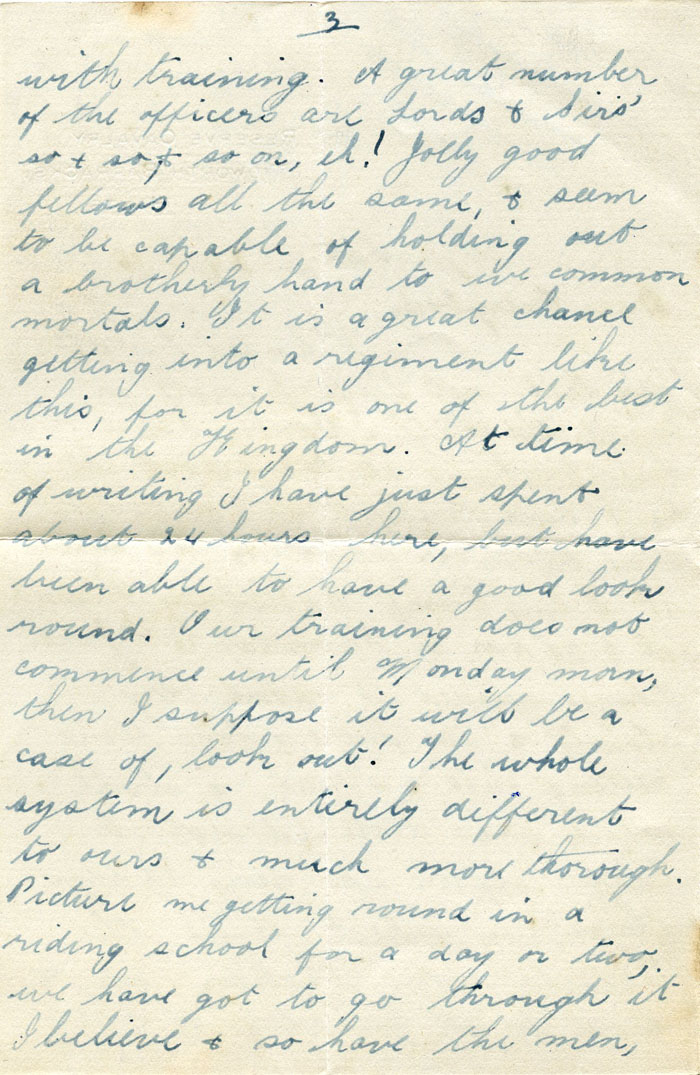 3
with training. A great number
of the officers are Lords & Sirs'
so & so, & so on, eh! Jolly good
fellows all the same, & seem
to be capable of holding out
a brotherly hand to we common
mortals. It is a great chance
getting into a regiment like
this, for it is one of the best
in the Kingdom. At time
of writing I have just spent
about 24 hours here, but have
been able to have a good look
round. Our training does not
commence until Monday morn,
then I suppose it will be a
case of, look out! The whole
system is entirely different
to ours & much more thorough.
Picture me getting round in a
riding school for a day or two,
we have got to go through it
I believe & so have the men,